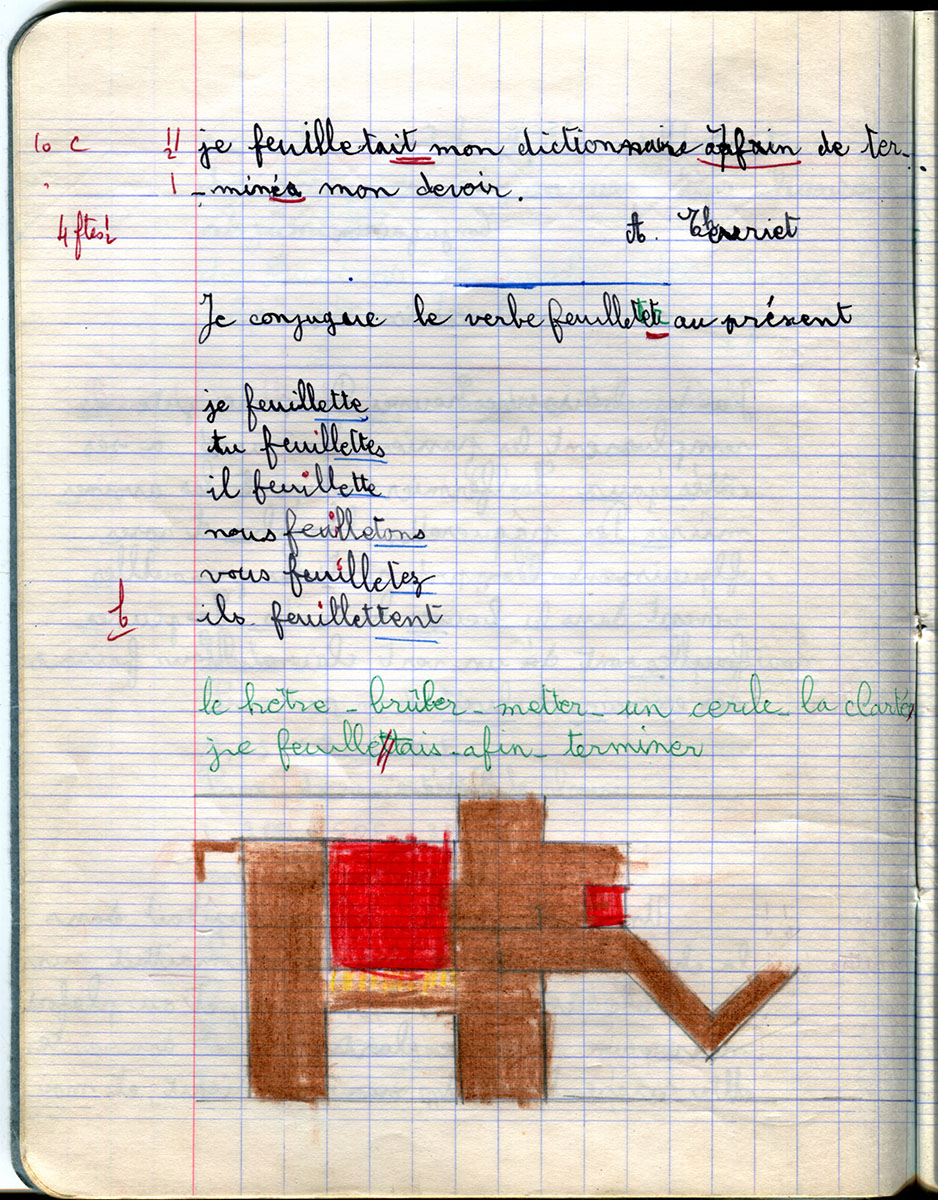 10 c 1 1/2 je feuilletait mon dictionnaire afin de ter-
1 - minéa mon devoir.
4 ftes 1/2
A. Theuriet
Je conjugue le verbe feuilleter au présent
je feuillette
tu feuillettes
il feuillette
nous feuilletons
vous feuilletez
b ils feuillettent
le hêtre - brûler - metter - un cercle - la clarté
je feuillettais - afin - terminer